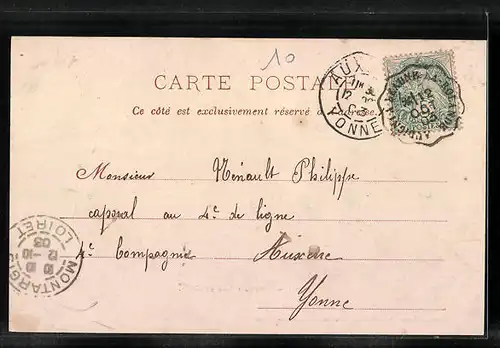 10
CARTE POSTALE
Ce côté est exclusivement réservé à l'adresse.
AUX
YONNE
OCT
03
Monsieur Ménault Philippe
caporal au 4e de ligne
4e Compagnie Auxerre
Yonne
MONTARGIS
LOIRET
12 -10
03